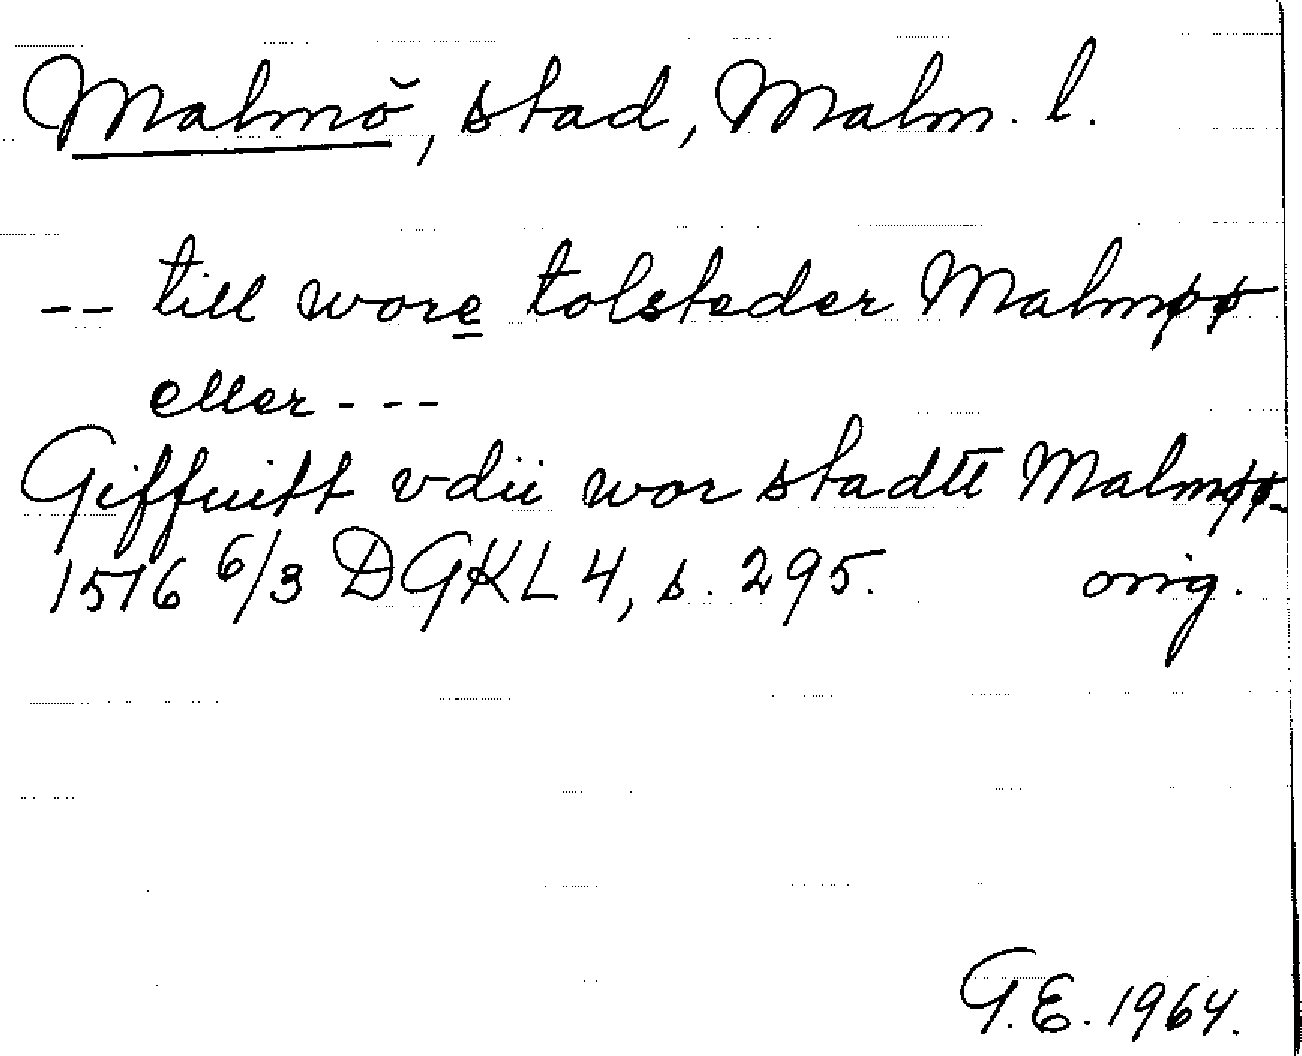 Malmö, stad, Malm. l.
-- till wore tolsteder Malmøø
eller ---
Giffuitt vdii wor stadtt Malmøø.
1516 6/3 DGKL 4, s. 295. orig.
G.E. 1964.